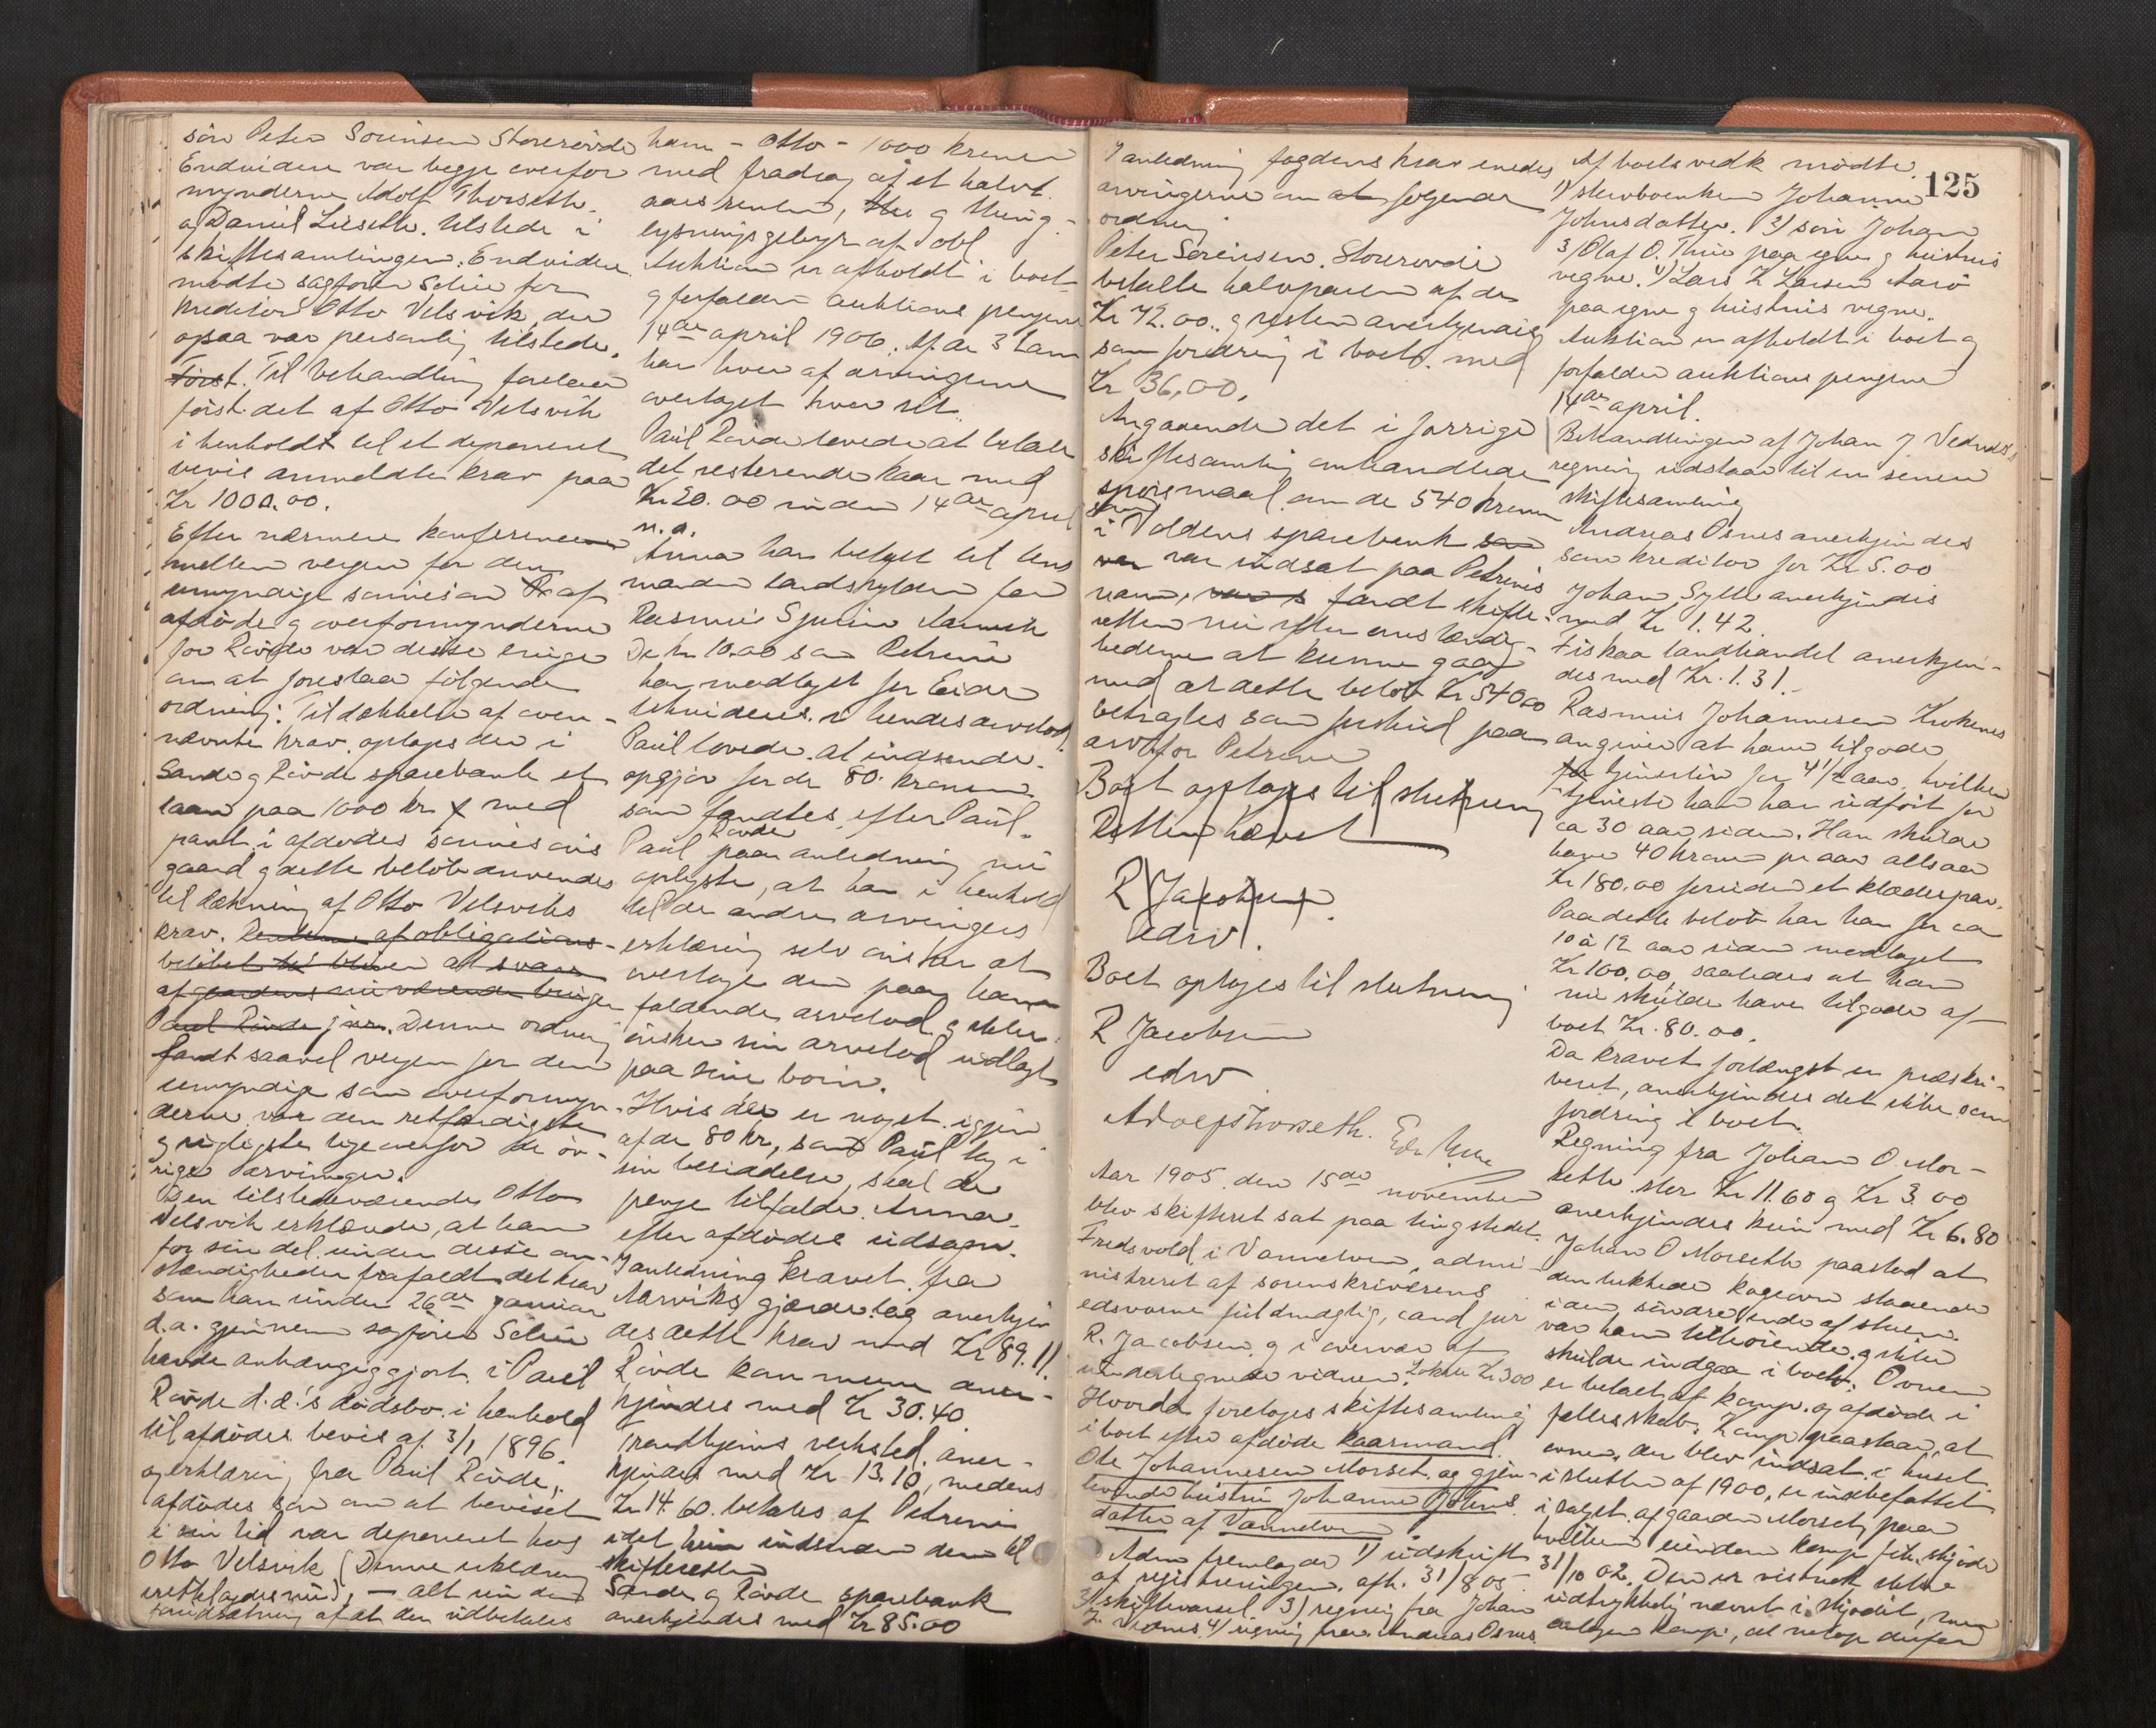 søn Peter Sørensen Storerøvde
Endvidere var begge overfor
mynderne Adolf Thorseth
og Daniel Lieseth tilstede i
skiftesamlingen. Endvidere
mødte sagfører Schie for
kreditor Otto Velsvik, der
ogsaa var personlig tilstede.
Først. Til behandling forelaa
først det af Otto Velsvik
i henholdt til et deponeret
bevis anmeldte krav paa
Kr 1000.00.
Efter nærmere konference
mellem vergen for den
umyndige sønnesøn af
afdøde og overformynderne
for Røvde var disse enige
om at foreslaa følgende
ordning: Til dækkelse af oven-
nævnte krav optages der i
Sande og Røvde sparebank et
laan paa 1000 kr med
pant i afdødes sønnesøns
gaard og dette beløb anvendes
til dækning af Otto Velsviks
krav. Renterne af obligations-
beløbet bliver at svare
af gaardens nuværende bruger
Paul Røvde jnr. Denne ordning
fandt saavel vergen for den
umyndige som overformyn-
derne var den retfærdigste
og rigtigste ligeoverfor de øv-
rige arvinger.
Den tilstedeværende Otto
Velsvik erklærede, at han
for sin del under disse om-
stændigheder frafaldt det krav
som han under 26de januar
d.a. gjennem sagfører Schie
havde anhængiggjort i Paul
Røvde d.æ.'s dødsbo i henhold
til afdødes bevis af 3/1 1896
og erklæring fra Paul Røvde,
afdødes søn om at beviset
i sin tid var deponeret hos
Otto Velsvik (Denne erklæring
irettelagdes nu), — alt under
forudsætning af at der udbetales
ham - Otto - 1000 kroner
med fradrag af et halvt
aars renter, og thing-
lysningsgebyr af obl
Auktion er afholdt i boet
og forfalder auktions pengene
14de april 1906. Af de 3 lam
har hver af arvingerne
overtaget hver sit.
Paul Røvde lovede at betale
det resterende kaar med
Kr 20.00 inden 14de april
n.a.
Anna har betalt til lens
manden landskylden for
Rasmus
De kr 10.00 som Petrine
har modtaget for
likvideres i hendes arvelod.
Paul lovede at indsende
opgjør for de 80 kroner
som fandtes efter Paul.
Paul Røvde paa anledning nu
oplyste, at han i henhold
til de andre arvingers
erklæring selv ønsker at
overtage den paa ham
faldende arvelod og ikke
ønsker sin arvelod udlagt
paa sine børn.
Hvis der er noget igjen
af de 80 kr, som Paul tog i
sin besiddelse, skal de
penge tilfalde Anna
efter afdødes udsagn.
I anledning kravet fra
Aarviks gjordelag anerkjen
des dette krav med Kr 89.11
Røvde kan mene aner-
kjendes med Kr 30.40
Trandhjems verksted aner-
kjendes med Kr 13.10, medens
Kr 14.60 betales af Petrine
idet hun indsender dem til
skifteretten
Sande og Røvde sparebank
anerkjendes med Kr 85.00
125
I anledning fogdens krav enedes
arvingerne om at følgende
ordning
Peter Sørensen Storerøvde
betalte halvparten af de
Kr 72.00. og resten anerkjendes
som fordring i boet med
Kr 36,00.
Angaaende det i forrige
skiftesamling omhandlede
spørsmaal om de 540 kroner
som
i Voldens sparebank som
var var indsat paa Petrines
navn, fandt skifte-
retten nu efter omstændig-
hederne at kunne gaa
med at dette beløb Kr 540.00
betragtes som forskud paa
arv for Petrine
Boet optages til slutning
Retten hævet
R Jacobsen
edsv.
Boet optages til slutning
R Jacobsen
edsv
Adolf Thorseth.
Aar 1905 den 15de november
blev skifteret sat paa tingstedet
Fredsvold i Vannelven, admi-
nistreret af sorenskriverens
edsvorne fuldmægtig, cand jur
R. Jacobsen og i overvær af
undertegnede vidner. Lokale Kr 3.00
Hvorda foretages skiftesamling
i boet efter afdøde kaarmand
Ole Johannesen Morset og gjen-
levende hustru Johanne Johns
datter af Vannelven
Adm fremlagde 1) udskrift
af registreringen afh. 31/8 05
2) skiftevarsel 3) regning fra Johan
J. Vednes 4) regning fra Andreas Osnes
Af boets vedk mødte
1) sterbøenken Johanne
Johnsdatter. 2) søn Johan
3) Olaf O. Thue paa egne og hustrus
vegne. 4) Lars K Larsen Aarø
paa egne og hustrus vegne.
Auktion er afholdt i boet og
forfalder auktions pengene
14de april.
Behandlingen af Johan J. Vednes's
regning udstaar til en senere
skiftesamling
Andreas Osnes anerkjendes
som kreditor for Kr 5.00
Johan Sylte anerkjendes
med Kr 1.42
Fiskaa landhandel anerkjen-
des med Kr. 1.31.-
Rasmus Johannesen Krokenes
angiver at have tilgode
for tjenerløn for 4½ aar, hvilken
tjeneste han har udført for
ca 30 aar siden. Han skulde
have 40 kroner pr aar altsaa
Kr 180.00 foruden et klædespar.
Paa dette beløb har han for ca
10 à 12 aar siden modtaget
Kr 100.00, saaledes at han
nu skulde have tilgode af
boet Kr. 80.00.
Da kravet forlængst er præskri-
beret, anerkjendes det ikke som
fordring i boet.
Regning fra Johan O. Mor-
seth stor Kr 11.60 og Kr 3.00
anerkjendes kun med Kr 6.80
Johan O Morseth paastod at
den kogeovn staaende
i den søndre ende af stuen
var ham tilhørende og ikke
skulde indgaa i boet. Ovnen
er betalt af Kamp og afdøde i
fellesskab. Kamp paastaar, at
ovnen, der blev indsat i huset
i slutten af 1900, er indbefattet
i salget af gaarden Morset, paa
hvilken eiendom Kamp fik skjøde
31/10 02. Den er vistnok ikke
udtrykkelig nævnt i skjødet, men
Kamp, at netop derfor